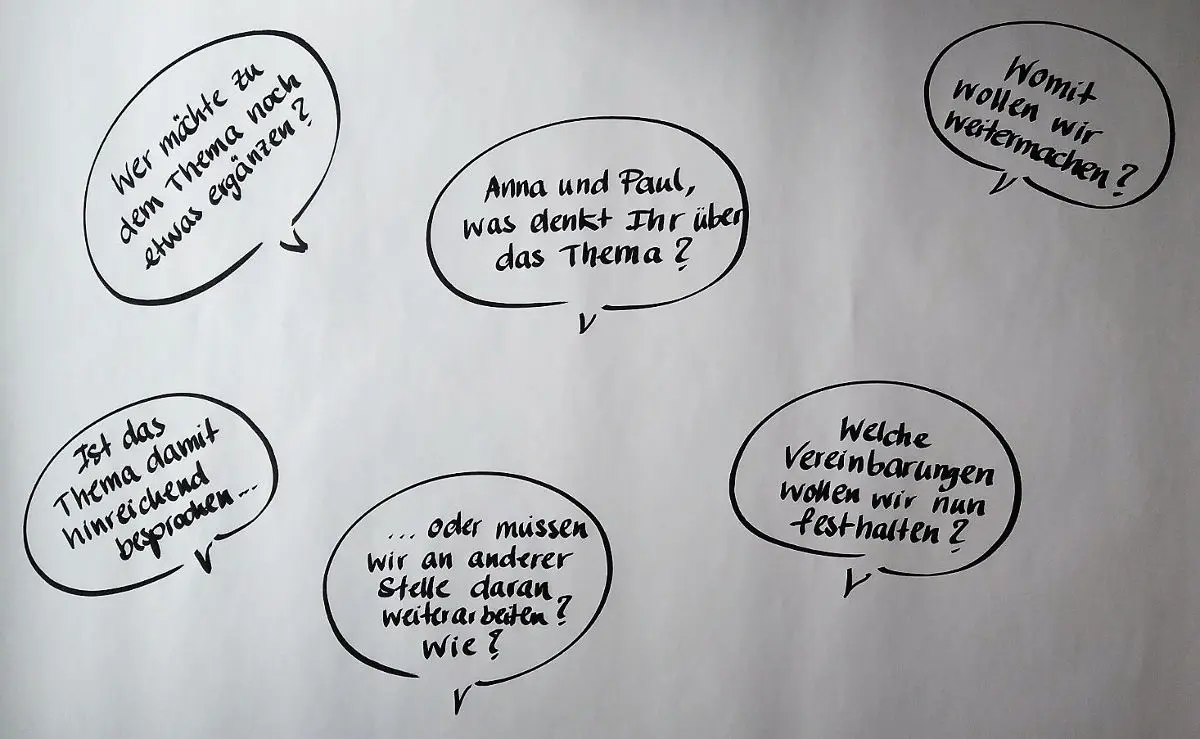 Wer möchte zu
dem Thema noch
etwas ergänzen?
Anna und Paul,
was denkt Ihr über
das Thema?
Womit
wollen wir
weitermachen?
Ist das
Thema damit
hinreichend
besprochen...
... oder müssen
wir an anderer
Stelle daran
weiterarbeiten?
Wie?
Welche
Vereinbarungen
wollen wir nun
festhalten?